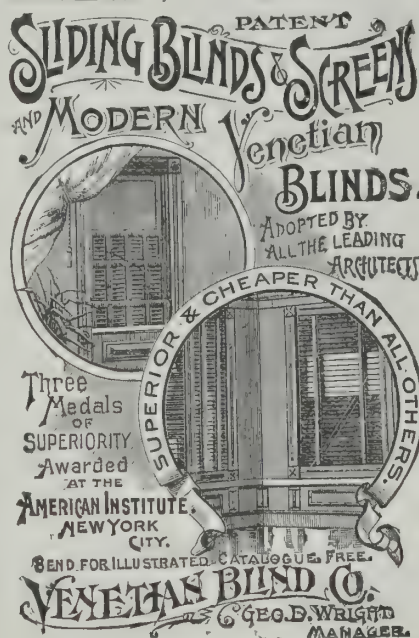 PATENT
SLIDING BLINDS & SCREENS
AND MODERN
Venetian
BLINDS
ADOPTED BY
ALL THE LEADING
ARCHITECTS
SUPERIOR & CHEAPER THAN ALL OTHERS.
Three
Medals
OF
SUPERIORITY
Awarded
AT THE
AMERICAN INSTITUTE,
NEW YORK
CITY.
SEND FOR ILLUSTRATED CATALOGUE FREE.
VENETIAN BLIND CO.
GEO. D. WRIGHT
MANAGER